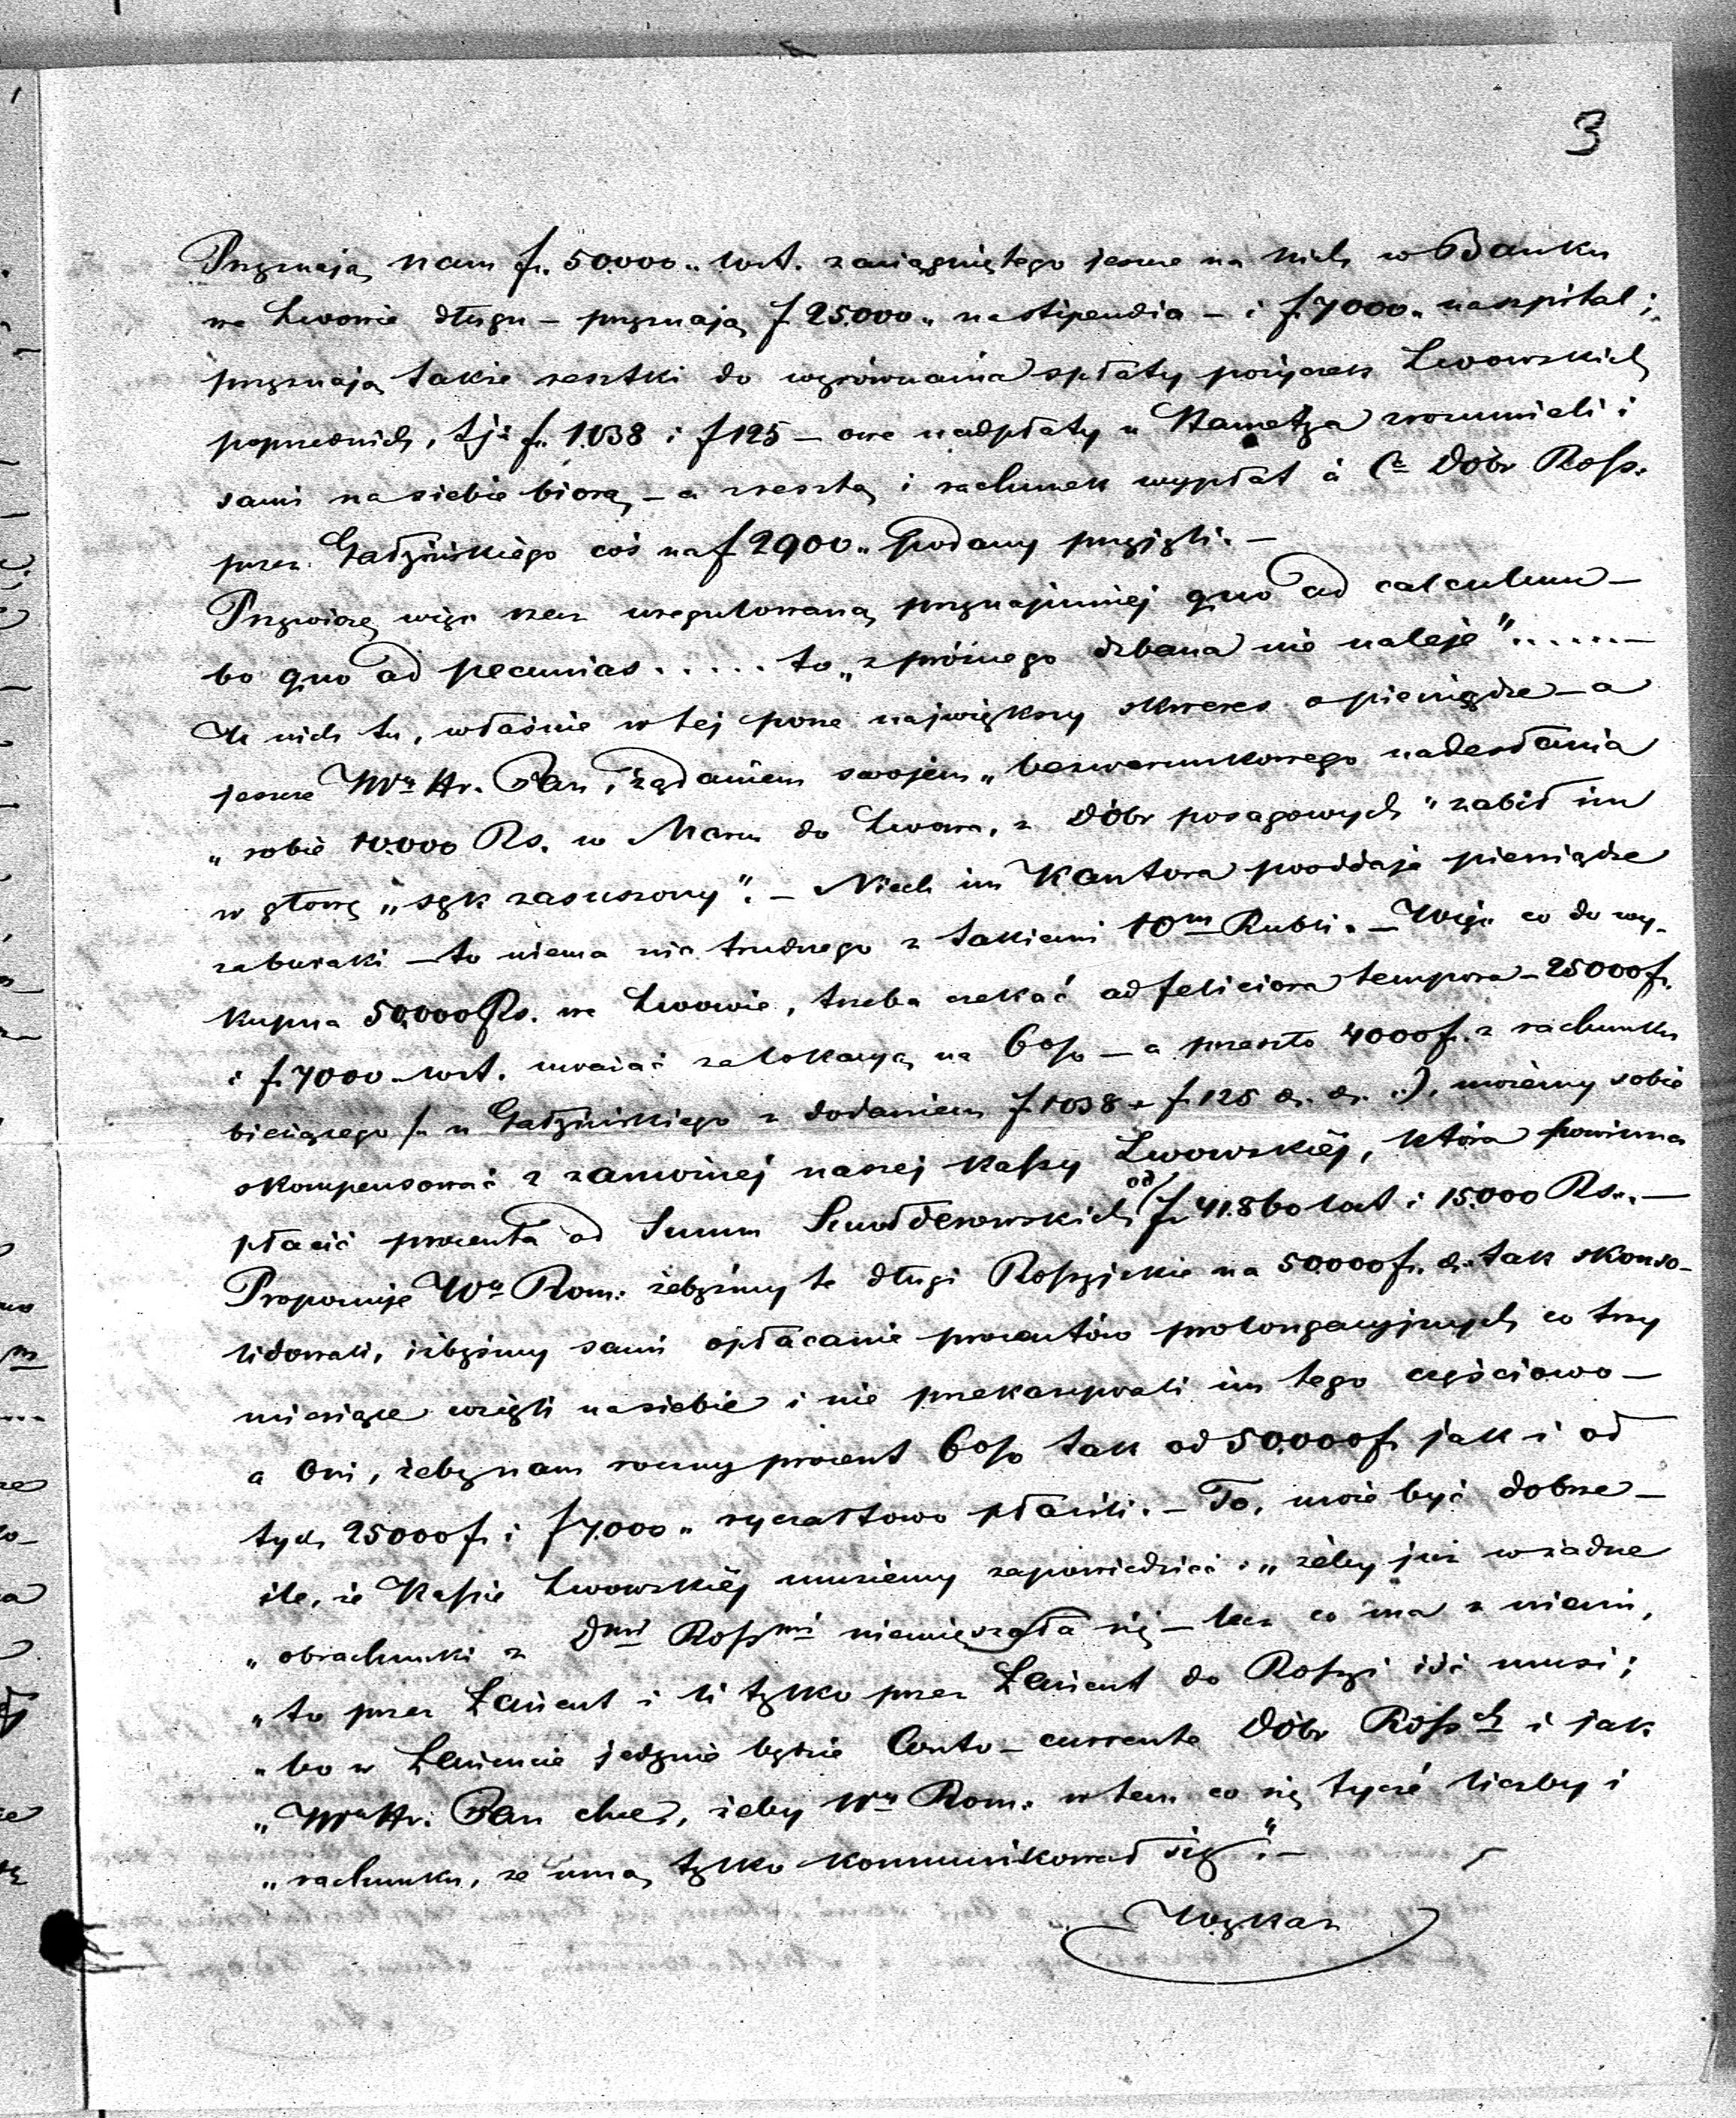 3
Przyznają nam f. 50.000 „ wA. zaciągniętego jeszcze na nich w Banku
we Lwowie długu – przyznają f 25.000 „ na stipendia – i f. 7000 „ na szpital ;
przyznają także resztki do wyrównania spłaty pożyczek Lwowskich
poprzednich, tj: f. 1.038 i f 125 – owe nadpłaty u Kametza zrozumieli i
sami na siebie biorą – a zresztą i rachunek wypłat à Cte Dóbr Ross.
przez Gadzińskiego coś na f 2900 „ podany przyjęli. –
Przywiozę więc rzecz uregulowaną przynajmniej quo ad calculum –
bo quo ad pecunias . . . . . to „ z próżnego dzbana nie naleje " . . . . . . –
U nich tu, właśnie w tej porze największy skweres o pieniądze – a
jeszcze JWny Hr. Pan, żądaniem swojem „ bezwarunkowego nadesłania
„ sobie 10.000 Rs. w Marcu do Lwowa, z Dóbr posagowych " zabił im
w głowę „ sęk zasuszony ". – Niech im Kantora pooddaje pieniądze
za buraki – to niema nic trudnego z takiemi 10m Rubli. – Więc co do wy-
kupna 50.000 Rs. we Lwowie, trzeba czekać ad feliciora tempora – 25000 f.
i f. 7000 wA. uważać za lokacyą na 6% – a przeszło 4000 f. z rachunku
bieżącego /: u Gadzińskiego z dodaniem f. 1038 + f. 125 &. &. :), możemy sobie
skompensować z zawinnej naszej Kassy Lwowskiéj, która powinna
płacić procenta od Summ Smolderowskich od f. 41.860 wA i 15.000 Rs. –
Proponuje Wny Rom: żebyśmy te długi Rossyjskie na 50.000 f. &. tak skonso-
lidowali, iżbyśmy sami opłacanie procentów prolongacyjnych co trzy
miesiące wzięli na siebie i nie przekazywali im tego częściowo –
a Oni, żeby nam roczny procent 6% tak od 50.000 f. jak i od
tych 25000 f. i f 7.000 „ ryczałtowo płacili. – To, może być dobrze –
ile, że Kassie Lwowskiéj musiemy zapowiedzieć : „ żeby już w żadne
„ obrachunki z Dmi Rossmi niewięzała się – lecz co ma z niemi,
„ to przez Łańcut i li tylko przez Łańcut do Rossyi iść musi ;
„ bo w Łańcucie jedynie będzie Conto-currente Dóbr Rossch i jak
„ JWny Hr. Pan chce, żeby Wny Rom. w tem co się tyczé liczby i
„ rachunku, ze mną tylko kommunikował się ". –
Wyskaz